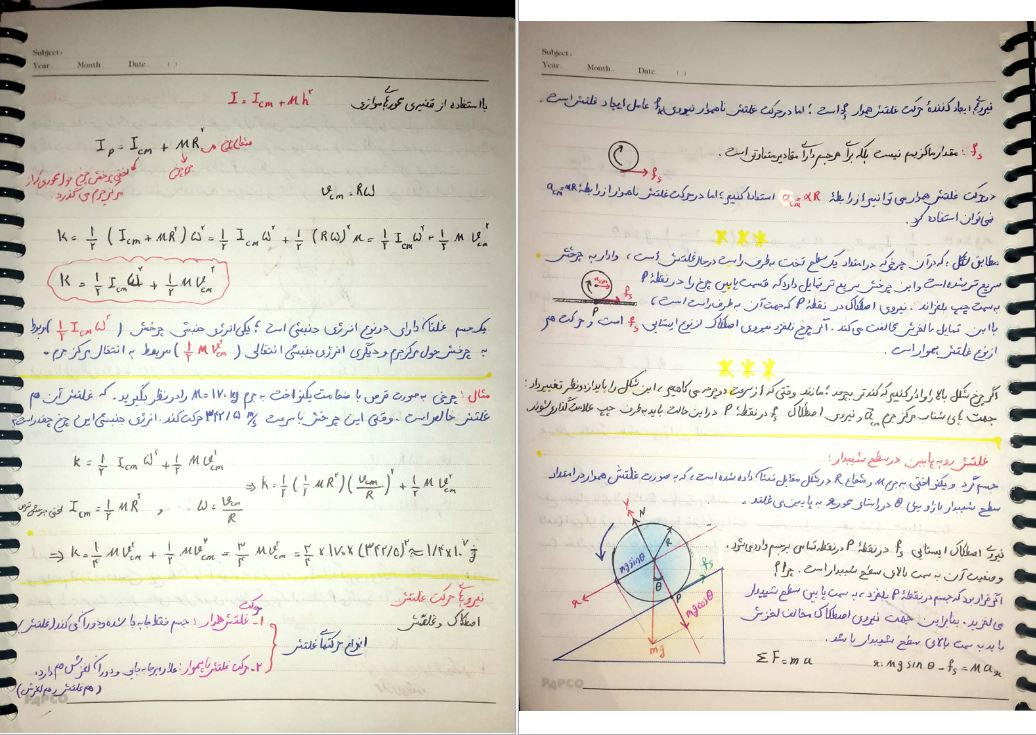 Subject:
Year. Month Date. ( )
با استفاده از قضیه‌ی محورهای موازی I = Icm + Mh²
Ip = Icm + MR²
vcm = Rω
K = ½ (Icm + MR²) ω² = ½ Icm ω² + ½ (Rω)² M = ½ Icm ω² + ½ M v²cm
K = ½ Icm ω² + ½ M v²cm
یک جسم غلتان دارای دو نوع انرژی جنبشی است؛ یکی انرژی جنبشی چرخشی (½ Icm ω²) مربوط
به چرخش حول مرکز جرم و دیگری انرژی جنبشی انتقالی (½ M v²cm) مربوط به انتقال مرکز جرم.
مثال: چرخی به صورت قرص با ضخامت یکنواخت به جرم M = ۱۷۰ kg را در نظر بگیرید. که غلتش آن هم
غلتش خالص است. وقتی این چرخ با سرعت ۳۴۲/۵ m/s حرکت کند. انرژی جنبشی این چرخ چقدر است؟
K = ½ Icm ω² + ½ M v²cm
⇒ K = ½ (½ MR²)(vcm/R)² + ½ M v²cm
Icm = ½ MR² , ω = vcm/R
⇒ K = ¼ M v²cm + ½ M v²cm = ¾ M v²cm = ¾ × ۱۷۰ × (۳۴۲/۵)² ≈ ۱/۴ × ۱۰⁷ j
نیروهای حرکت غلتش
اصطکاک و غلتش
انواع حرکتهای غلتش
۱- حرکت غلتش هموار: جسم فقط جابه‌جا شده و دوران می کند (غلتش)
۲- حرکت غلتش ناهموار: علاوه بر جابه جایی و دوران لغزش هم دارد.
(هم غلتش، هم لغزش)
PAPCO
Subject:
Year. Month Date. ( )
نیروی ایجاد کنندهٔ حرکت غلتش هموار fs است؛ اما در حرکت غلتش ناهموار نیروی fk عامل ایجاد غلتش است.
fs: مقدار ماکزیمم نیست بلکه برای هر جسم دارای مقادیر متفاوتی است.
fs
در حرکت غلتش هموار می توانیم از رابطهٔ acm = αR استفاده کنیم؛ اما در حرکت غلتش ناهموار از رابطهٔ acm = αR
نمی‌توان استفاده کرد.
مطابق شکل، که در آن چرخی که در امتداد یک سطح تخت به طرف راست در حال غلتش است، وادار به چرخش
سریع تر شده است و این چرخش سریع تر تمایل دارد که قسمت پایین چرخ را در نقطهٔ P
به سمت چپ بلغزاند. نیروی اصطکاک در نقطهٔ P که جهت آن به طرف راست است،
با این تمایل به لغزش مخالفت می کند. اگر چرخ نلغزد نیروی اصطکاک از نوع ایستایی fs است و حرکت هم
از نوع غلتش هموار است.
acm
fs
P
اگر چرخ شکل بالا را وادار کنیم که کندتر بچرخد؛ مانند وقتی که از سرعت دوچرخه می کاهیم، این شکل را باید از دو نظر تغییر داد:
جهت های شتاب مرکز جرم acm و نیروی اصطکاک fs در نقطهٔ P در این حالت باید به طرف چپ علامت گذاری شوند
غلتش رو به پایین در سطح شیبدار:
جسم گرد و یکنواختی به جرم M و شعاع R در شکل مقابل نشان داده شده است، که به صورت غلتش هموار در امتداد
سطح شیبدار با زاویه‌ی θ در راستای محور x به پایین می غلتد.
نیروی اصطکاک ایستایی fs در نقطهٔ P در نقطه تماس بر جسم وارد می شود.
و جهت آن به سمت بالای سطح شیبدار است. چرا؟
اگر قرار بود که جسم در نقطهٔ P بلغزد، به سمت پایین سطح شیبدار
می لغزید. بنابراین جهت نیروی اصطکاک مخالف لغزش
باید به سمت بالای سطح شیبدار باشد.
ΣF = ma x: mg sin θ - fs = Max
Y
N
R
mg sin θ
θ
fs
P
x
mg cos θ
mg
PAPCO